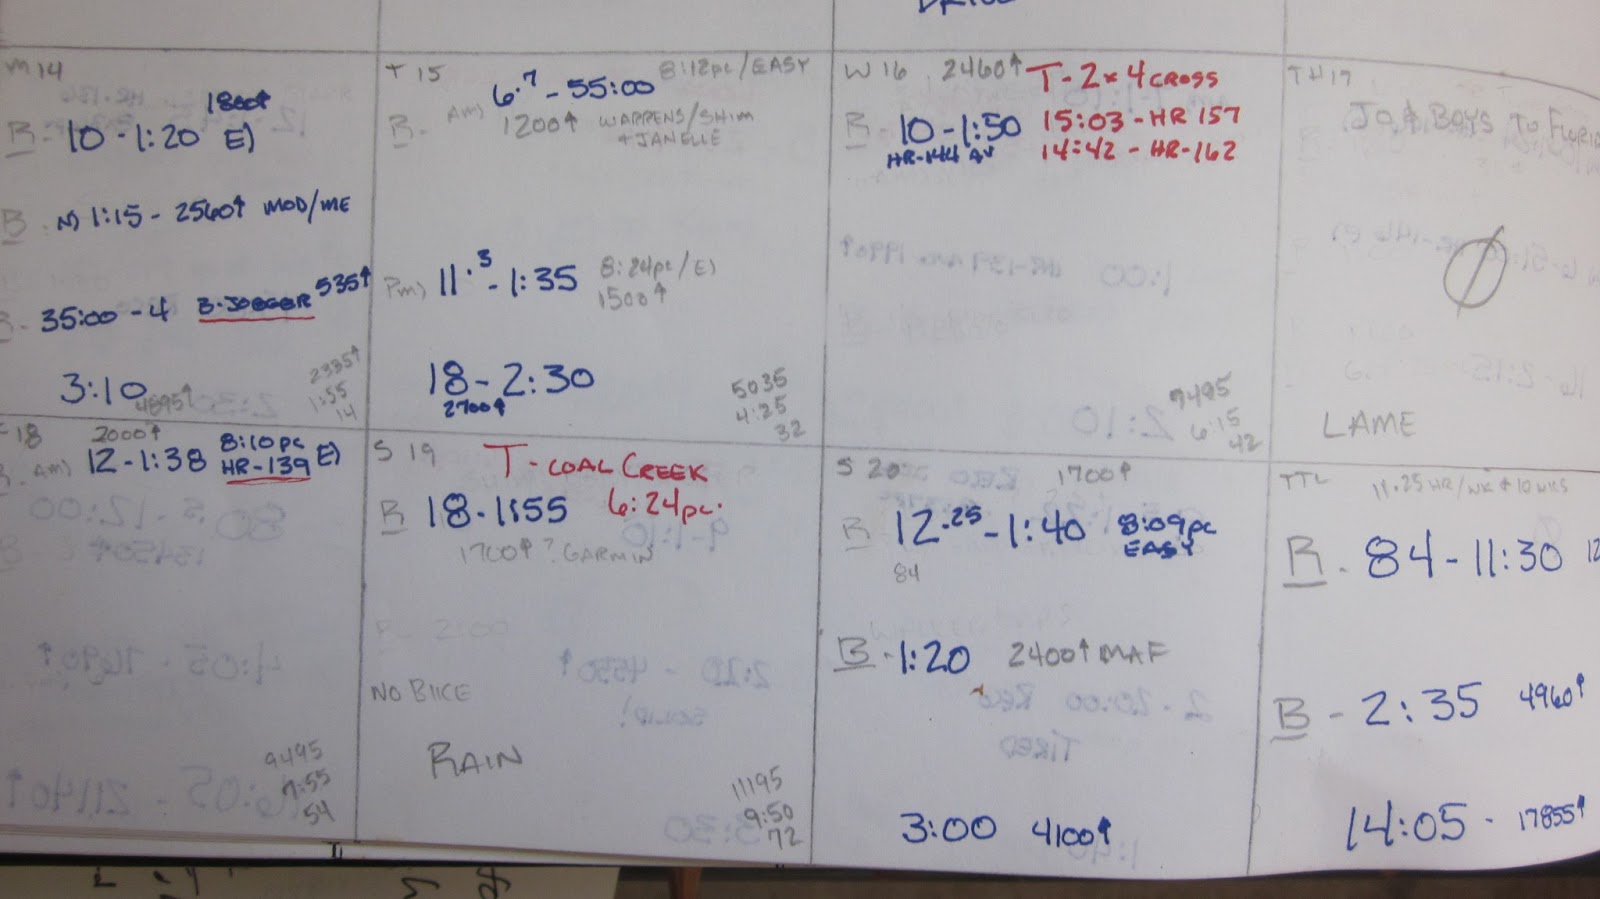 M 14
1800↑
R. 10 - 1:20 E)
B. N) 1:15 - 2560↑ MOD/ME
35:00 - 4 B. JOGGER 535↑
3:10 4895↑
2335↑
1:55
14
T 15
8:12pc/EASY
R. AM) 6.7 - 55:00
1200↑ WARRENS/SHIM
+ JANELLE
PM) 11.3 - 1:35 8:24pc/E)
1500↑
18 - 2:30
2700↑
5035
4:25
32
W 16 2460↑ T - 2 x 4 CROSS
R. 10 - 1:50 15:03 - HR 157
HR-144 AV 14:42 - HR-162
7495
6:15
42
TH 17
JO & BOYS TO
Ø
LAME
F 18 2000↑
R. AM) 12 - 1:38 8:10pc E)
HR-139
9495
7:55
54
S 19 T - COAL CREEK
R 18 - 1:55 6:24pc.
1700↑? GARMIN
NO BIKE
RAIN
11195
9:50
72
S 20 1700↑
R 12.25 - 1:40 8:09pc
EASY
84
B - 1:20 2400↑ MAF
3:00 4100↑
TTL 11.25 HR/WK * 10 WKS
R. 84 - 11:30
B - 2:35 4960↑
14:05 - 17855↑